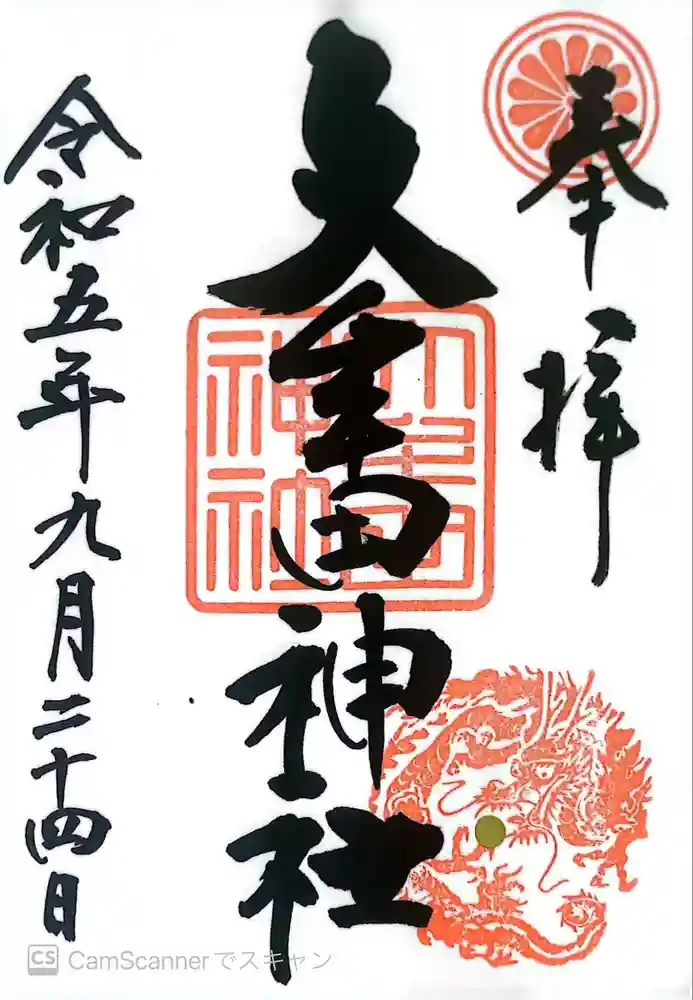 奉拝
神社
令和五年九月二十四日
神社
CS CamScannerでスキャン